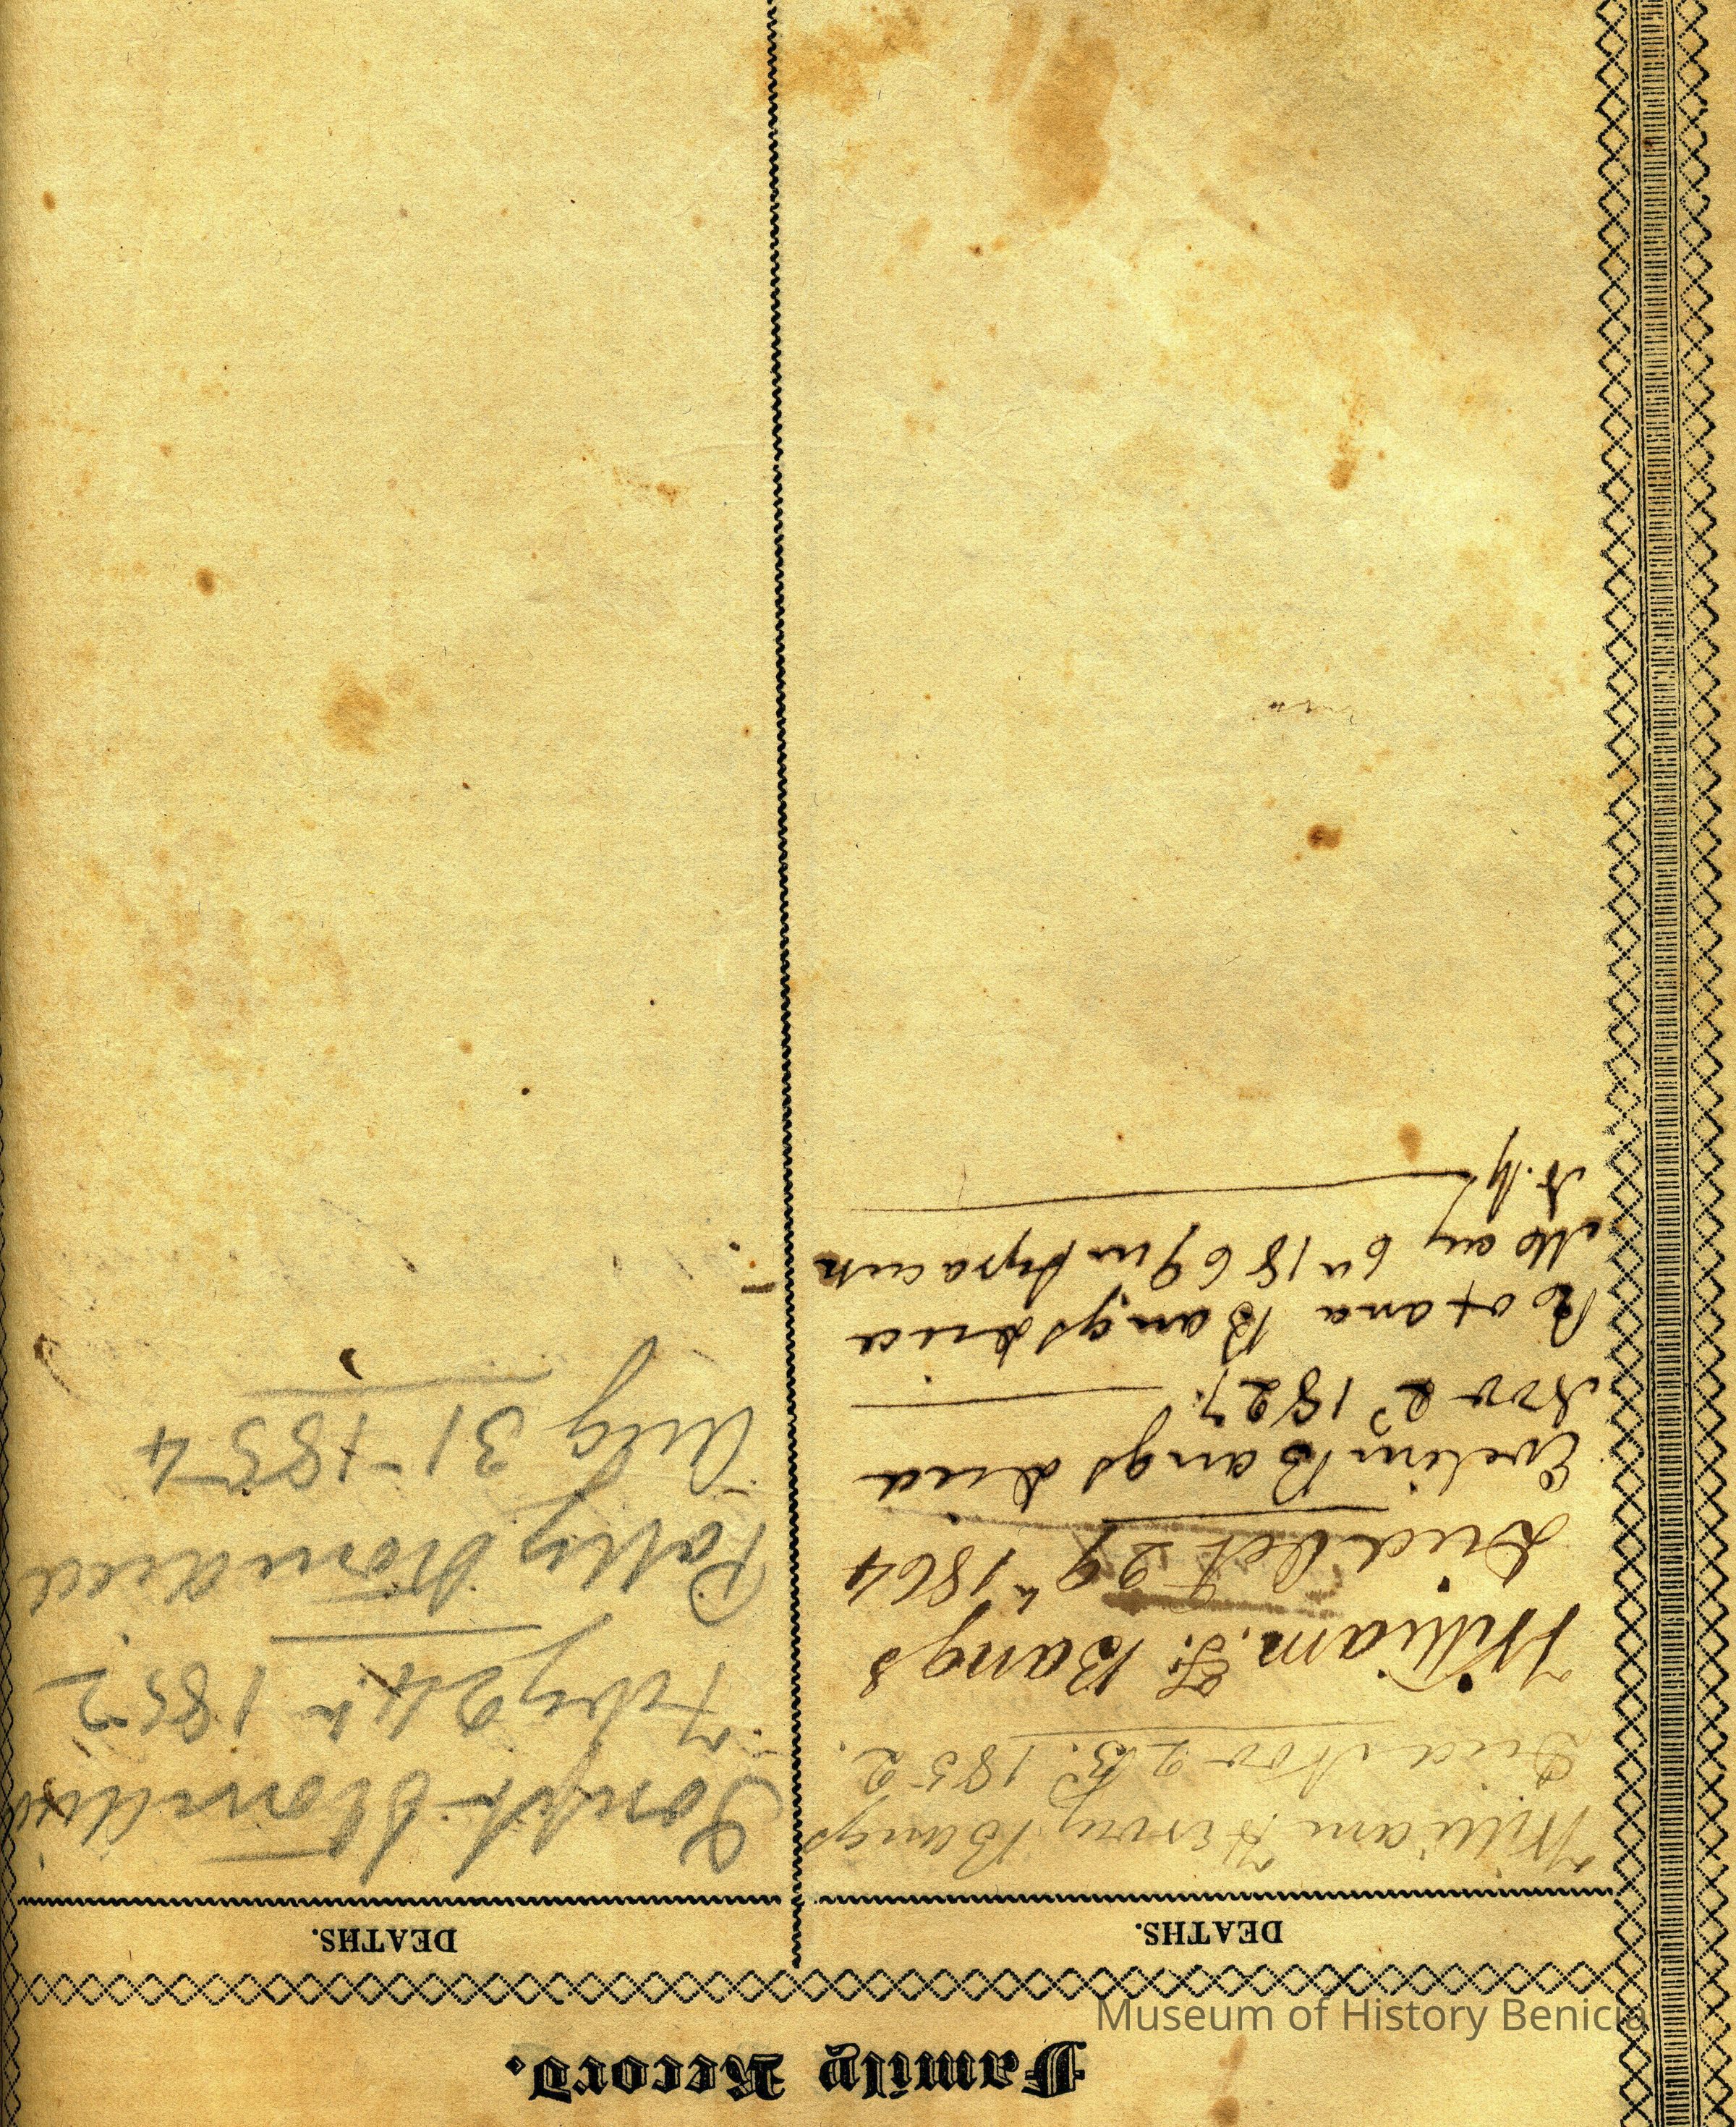 Family Record.
DEATHS.
William Henry Bangs
Died Nov 23. 1852.
William. F. Bangs
Died Oct 29th 1864
Evelin Bangs died
Nov 2d 1827.
Roxana Bangs died
May 6th 1869 in Syracuse
N.Y
DEATHS.
Joseph
Feby 24th 1852
Polly died
Aug 31st 1854
Museum of History Benicia